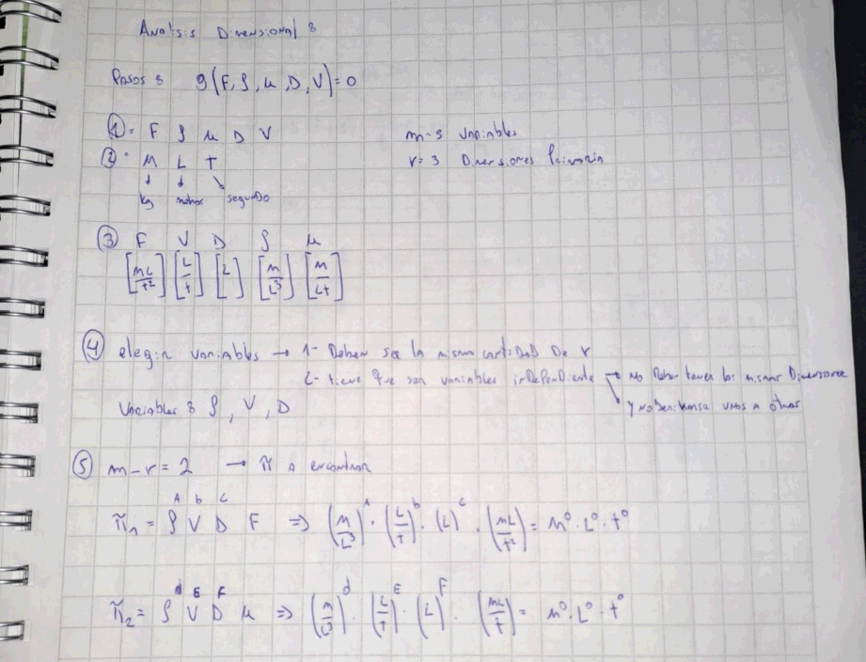 Analisis Dimensional :
Pasos : g(F, ρ, μ, D, V) = 0
①= F ρ μ D V m=5 variables
②= M L T r= 3 Dimensiones Primaria
kg metros segundo
③ F V D ρ μ
[ML/t²] [L/t] [L] [M/L³] [M/Lt]
④ elegir variables → 1- Deben ser la misma cantidad De r
2- tiene que ser variables independiente → no Deben tener las mismas Dimensiones
Variables : ρ, V, D y no unas a otras
⑤ m-r=2 → π a encontrar
π₁ = ρᴬ Vᵇ Dᶜ F ⇒ (M/L³)ᴬ · (L/t)ᵇ · (L)ᶜ · (ML/t²) = M⁰ · L⁰ · t⁰
π₂ = ρᵈ Vᴱ Dᶠ μ ⇒ (M/L³)ᵈ · (L/t)ᴱ · (L)ᶠ · (ML/t) = M⁰ · L⁰ · t⁰